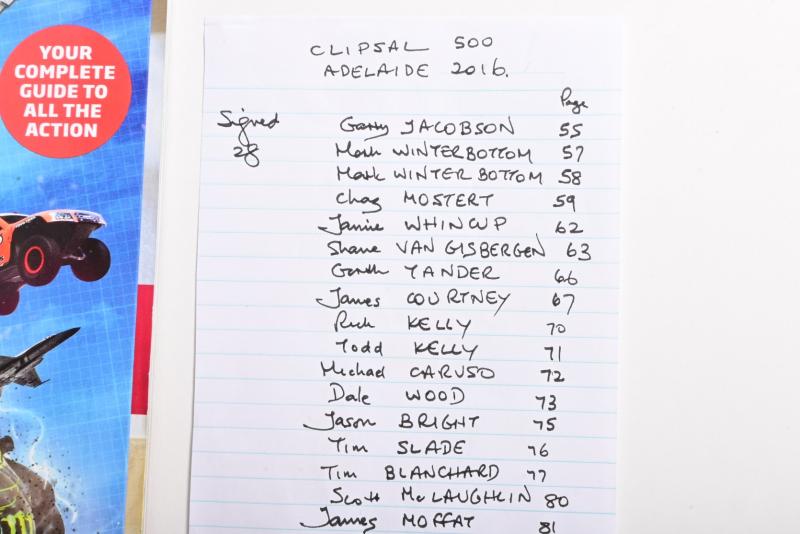 YOUR
COMPLETE
GUIDE TO
ALL THE
ACTION
CLIPSAL 500
ADELAIDE 2016.
Page
Signed
28
Garry JACOBSON 55
Mark WINTERBOTTOM 57
Mark WINTERBOTTOM 58
Chaz MOSTERT 59
Jamie WHINCUP 62
Shane VAN GISBERGEN 63
Garth TANDER 66
James COURTNEY 67
Rick KELLY 70
Todd KELLY 71
Michael CARUSO 72
Dale WOOD 73
Jason BRIGHT 75
Tim SLADE 76
Tim BLANCHARD 77
Scott McLAUGHLIN 80
James MOFFAT 81